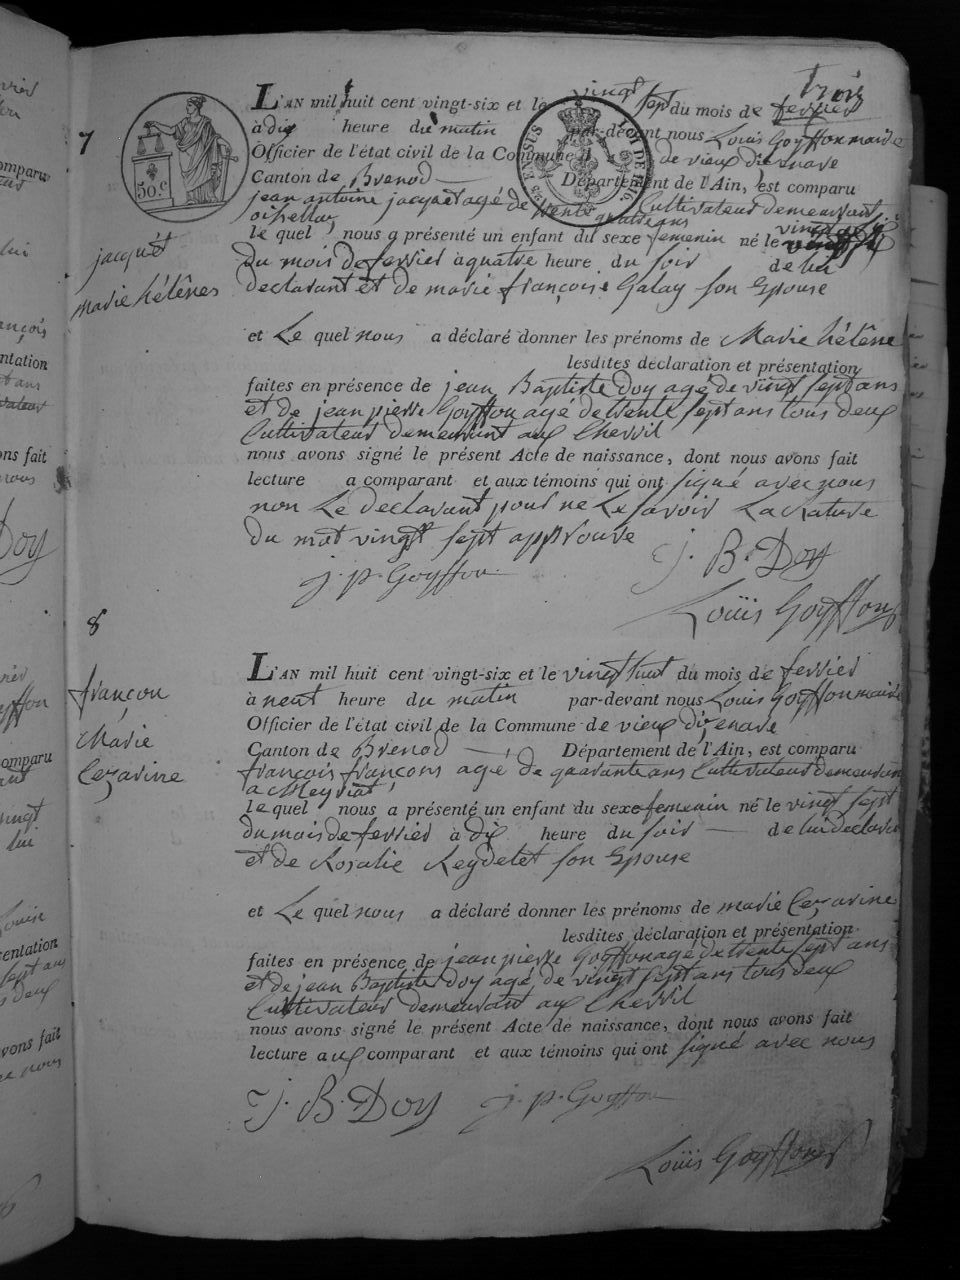 trois
7
50c
EN SUS
LOI DE 1816
L'AN mil huit cent vingt-six et le vingt sept du mois de fevrier
à dix heure du matin par-devant nous Louis Goyffon maire
Officier de l'état civil de la Commune de vieux dizenave
Canton de Brenod Département de l'Ain, est comparu
jean antoine jacquet agé de trente quatre ans Cultivateur demeurant
oisellaz
le quel nous a présenté un enfant du sexe femenin né le vingt six
du mois de fevrier à quatre heure du soir de lui
declarant et de marie françoise Galay son Epouse
jacquet
marie hélênes
et Le quel nous a déclaré donner les prénoms de Marie hélêne
lesdites déclaration et présentation
faites en présence de jean Baptiste doy agé de vingt sept ans
et de jean pierre Goyffon agé de trente sept ans tous deux
Cultivateur demeurant aux Chevril
nous avons signé le présent Acte de naissance, dont nous avons fait
lecture a comparant et aux témoins qui ont signé avec nous
non Le declarant pour ne Le savoir La Rature
du mot vingt sept approuve
J. B. Doy
j. p. Goyffon
Louis Goyffon
8
françon
Marie
Cezarine
L'AN mil huit cent vingt-six et le vingt huit du mois de fevrier
à neuf heure du matin par-devant nous Louis Goyffon maire
Officier de l'état civil de la Commune de vieux dizenave
Canton de Brenod Département de l'Ain, est comparu
françois françons agé de quarante ans Cultivateur demeurant
a Meyriat
le quel nous a présenté un enfant du sexe femenin né le vingt sept
du mois de fevrier à dix heure du soir de lui declarant
et de Rosalie Reydelet son Epouse
et Le quel nous a déclaré donner les prénoms de marie Cezarine
lesdites déclaration et présentation
faites en présence de jean pierre Goyffon agé de trente sept ans
et de jean Baptiste doy agé de vingt sept ans tous deux
Cultivateur demeurant aux Chevril
nous avons signé le présent Acte de naissance, dont nous avons fait
lecture aux comparant et aux témoins qui ont signé avec nous
J. B. Doy
j. p. Goyffon
Louis Goyffon